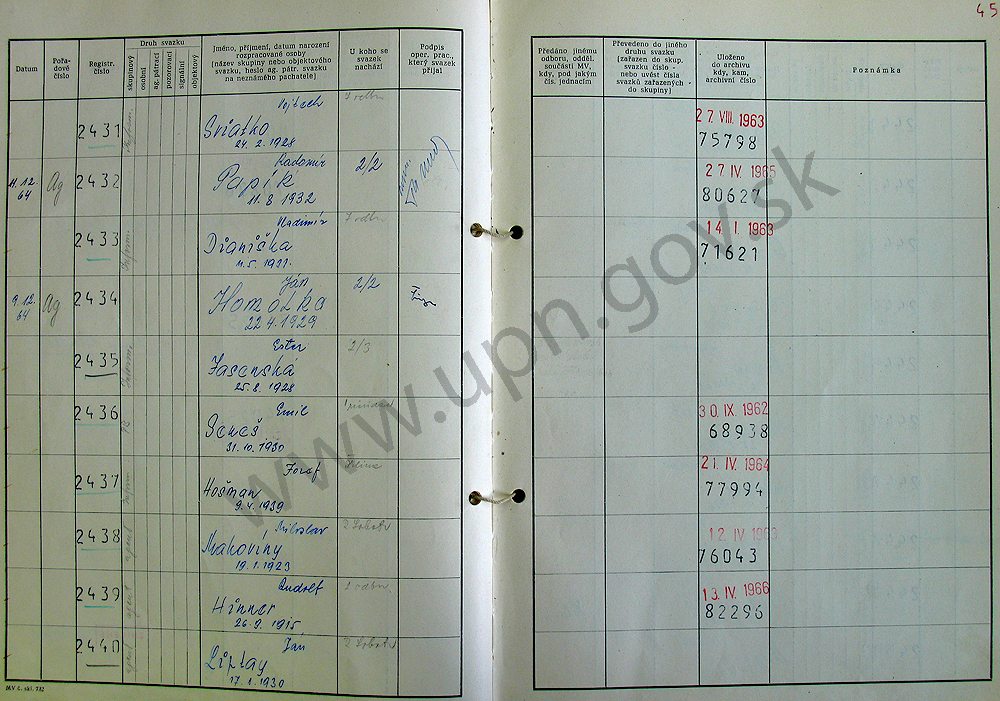 45
Datum
Pořa-
dové
číslo
Registr.
číslo
Druh svazku
skupinový
osobní
ag. pátrací
pozorovací
signální
objektový
Jméno, příjmení, datum narození
rozpracované osoby
(název skupiny nebo objektového
svazku, heslo ag. pátr. svazku
na neznámého pachatele)
U koho se
svazek
nachází
Podpis
oper. prac.,
který svazek
přijal
Předáno jinému
odboru, odděl.
součásti MV,
kdy, pod jakým
čís. jednacím
Převedeno do jiného
druhu svazku
(zařazen do skup.
svazku číslo -
nebo uvést čísla
svazků zařazených -
do skupiny)
Uloženo
do archivu
kdy, kam,
archivní číslo
Poznámka
2431
Vojtech
Sviatko
24. 2. 1928
27. VIII. 1963
75798
11. 12.
64
Ag
2432
Radomír
Papík
11. 8 1932
2/2
27. IV. 1965
80627
2433
Vladimír
Dianiška
14. I. 1963
71621
9. 12.
64
Ag
2434
Ján
Homolka
22 4. 1929
2/2
2435
Ester
Jasenská
25. 8. 1928
2/3
2436
Emil
31. 10. 1930
30. IX. 1962
68938
2437
Jozef
Hošman
9. 4. 1939
21. IV. 1964
77994
2438
agent
Miloslav
Makovíny
19. 1. 1923
12. IV
76043
2439
agent
Hinner
26. 9. 1915
13. IV. 1966
82296
2440
agent
Ján
Liptay
17. 1. 1930
www.upn.gov.sk